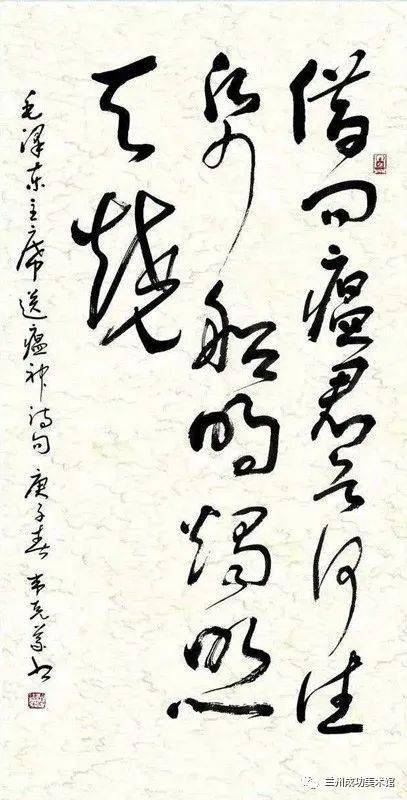 借问瘟君欲何往
纸船明烛照
天烧
毛泽东主席送瘟神诗句 庚子春 书
兰州成功美术馆